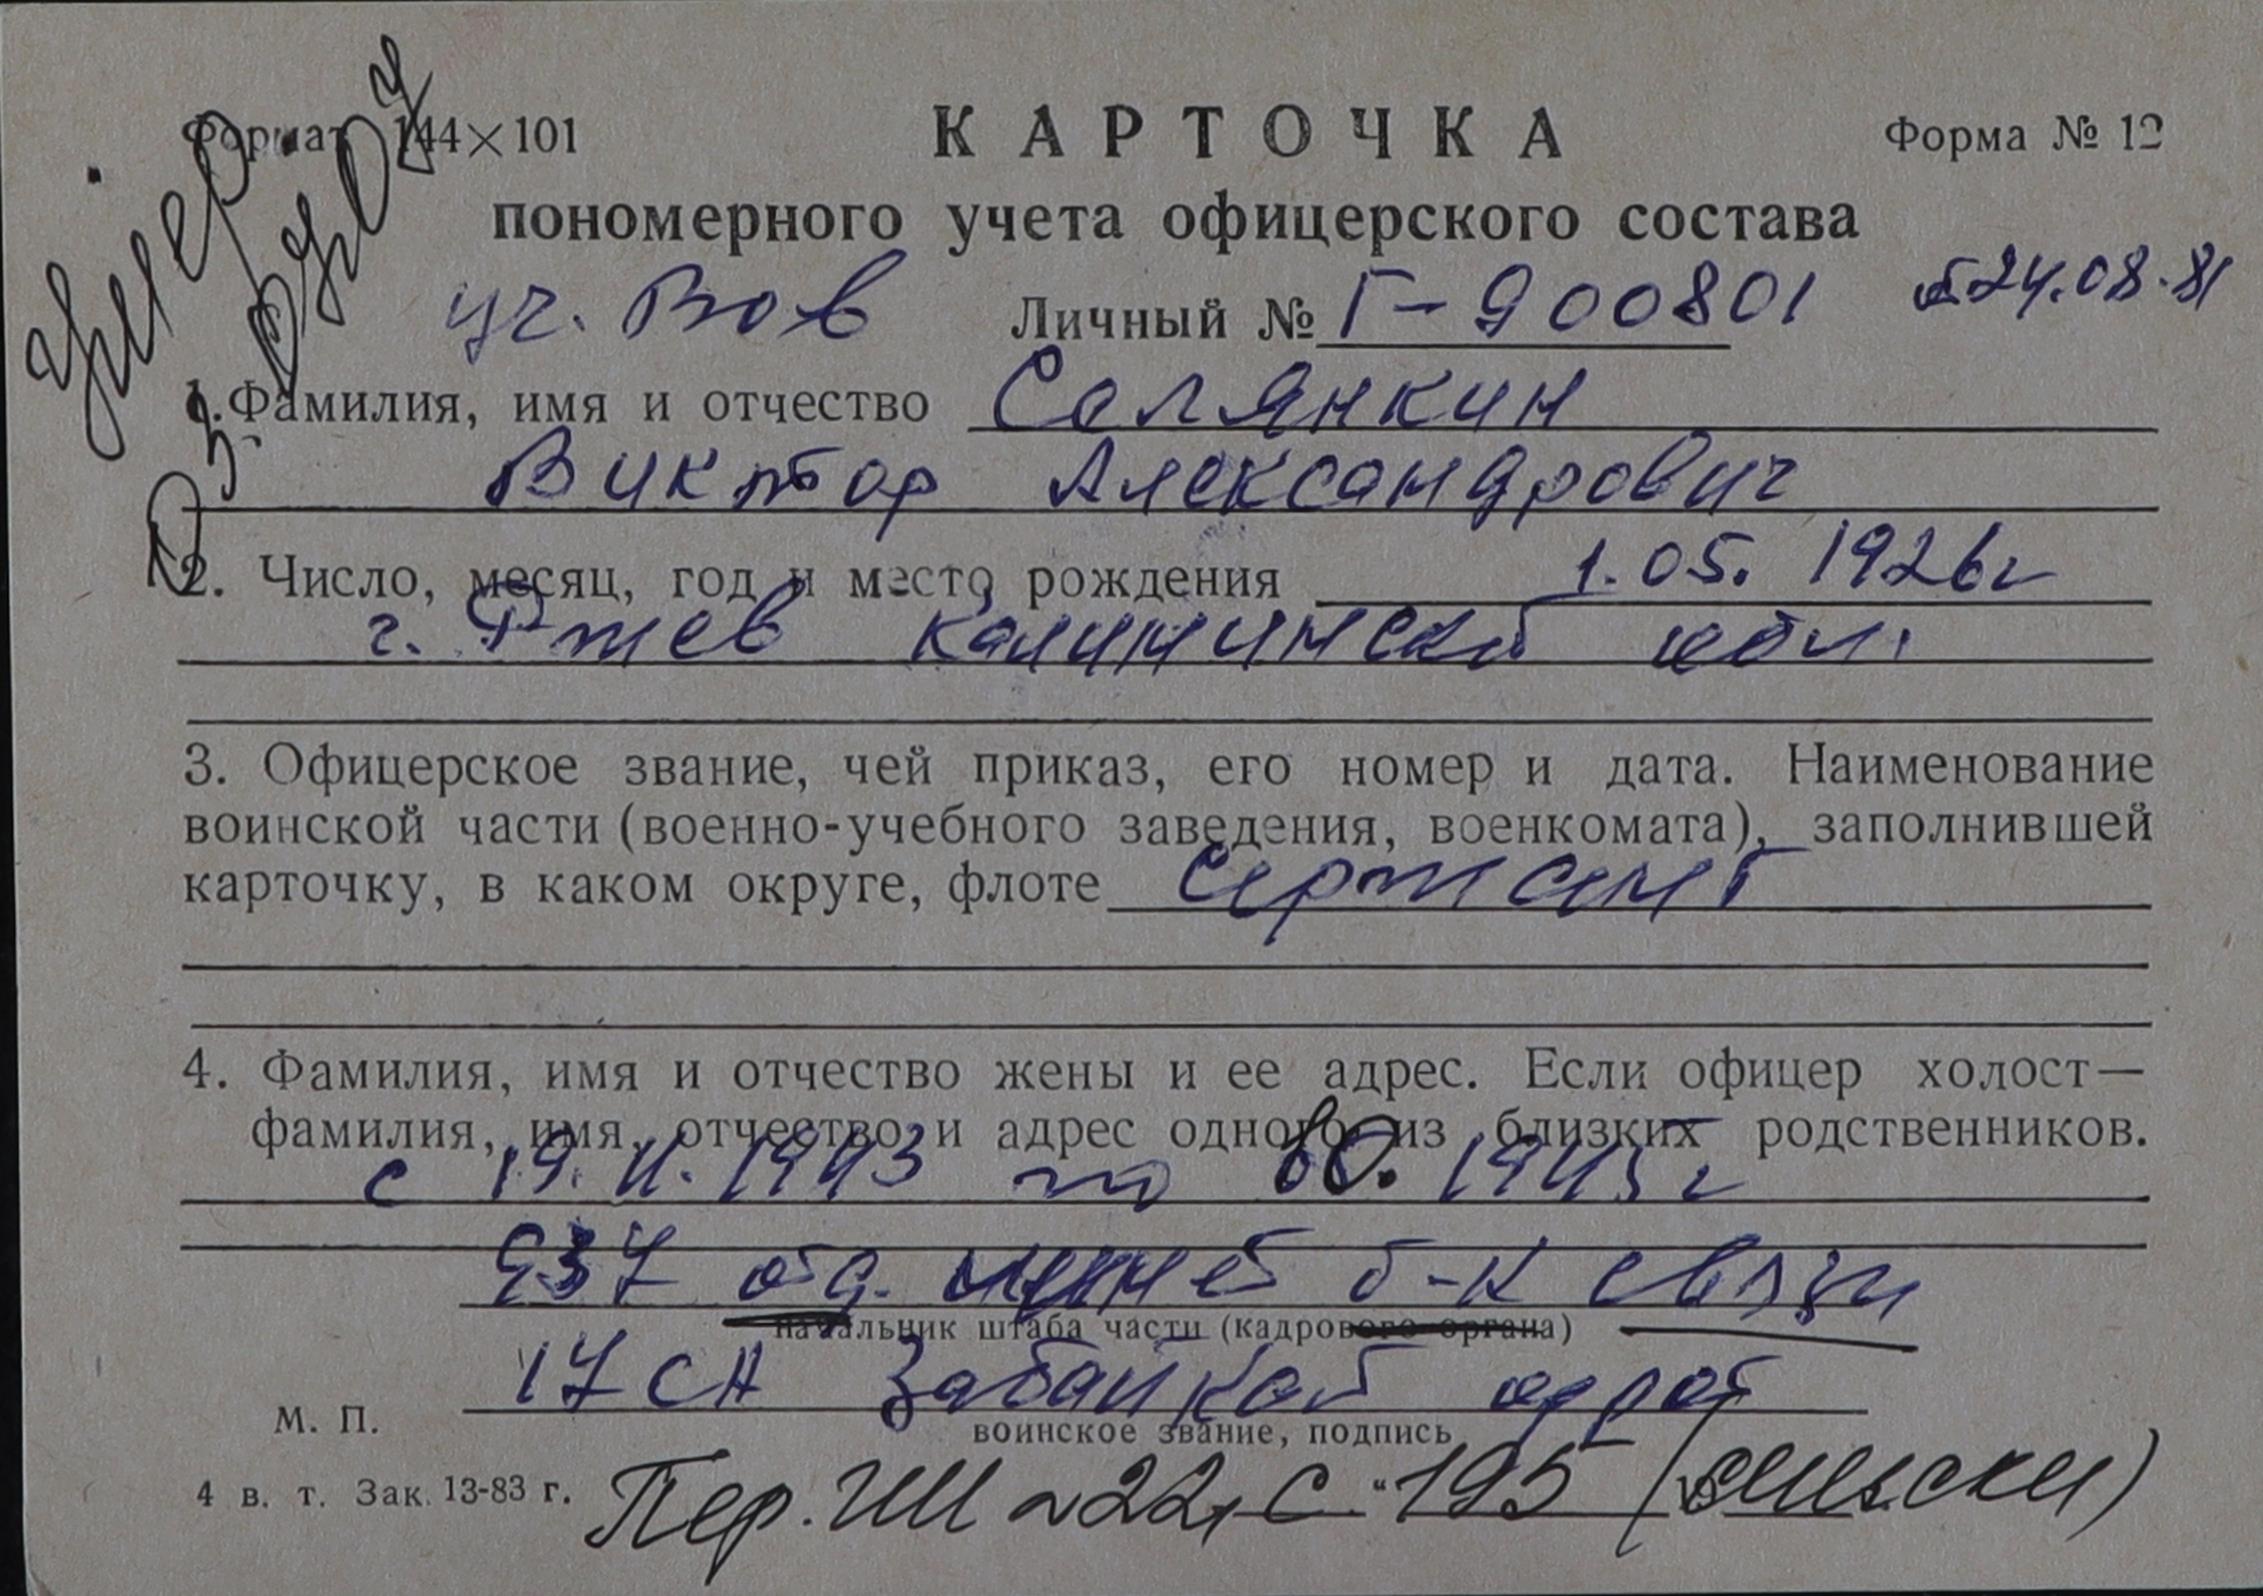 Формат 144×101
КАРТОЧКА
Форма № 12
пономерного учета офицерского состава
Умер
уч. Вов
Личный № Г-900801
24.08.81
1. Фамилия, имя и отчество Селянкин
Виктор Александрович
2. Число, месяц, год и место рождения 1.05.1926г
г. Ржев Калининской обл.
3. Офицерское звание, чей приказ, его номер и дата. Наименование
воинской части (военно-учебного заведения, военкомата), заполнившей
карточку, в каком округе, флоте сержант
4. Фамилия, имя и отчество жены и ее адрес. Если офицер холост—
фамилия, имя, отчество и адрес одного из близких родственников.
с 19. 1943 по 1945г
937 отд. линей б-н связи
начальник штаба части (кадрового органа)
17 СА Забайкал
М. П.
воинское звание, подпись
4 в. т. Зак. 13-83 г.
Пер. ГШ №22, с. 195